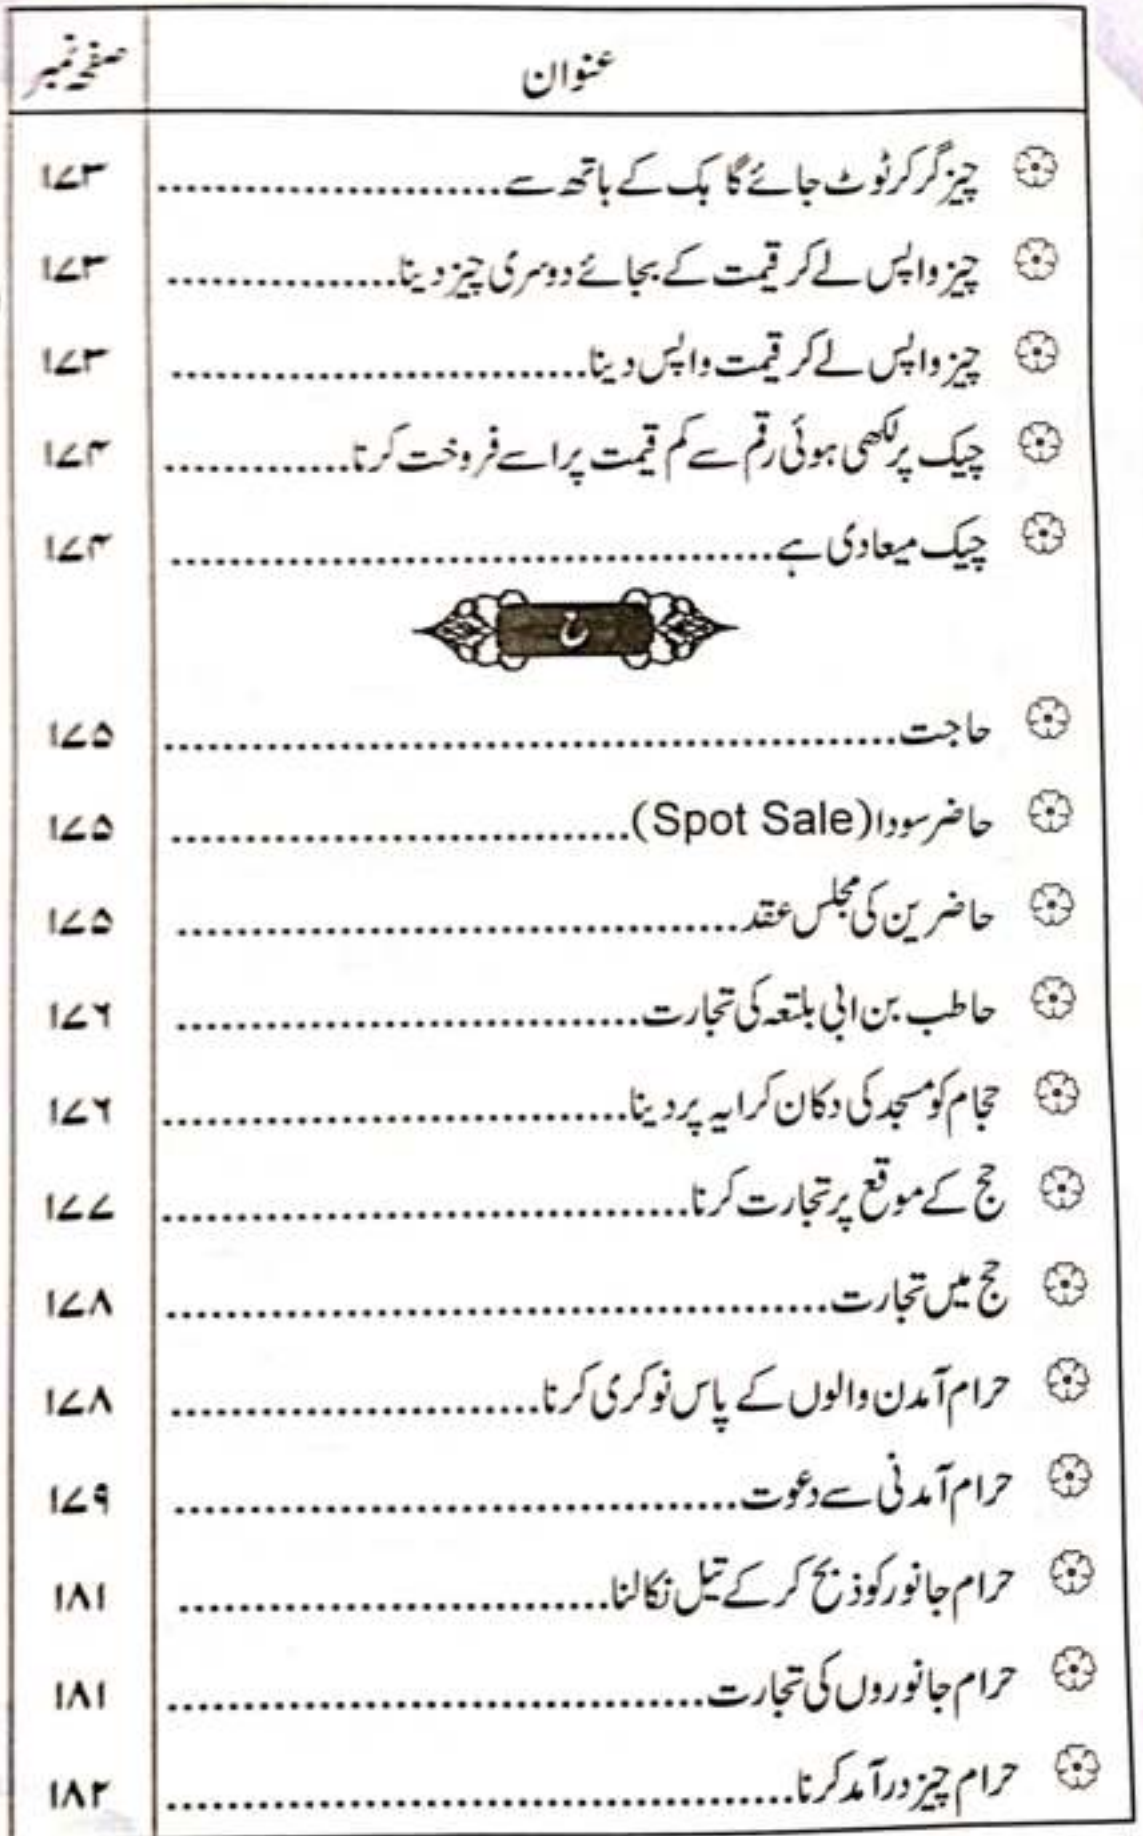 عنوان صفحہ نمبر
چیز گر کر ٹوٹ جائے گا ہک کے ہاتھ سے ۱۷۳
چیز واپس لے کر قیمت کے بجائے دوسری چیز دینا ۱۷۳
چیز واپس لے کر قیمت واپس دینا ۱۷۳
چیک پر لکھی ہوئی رقم سے کم قیمت پر اسے فروخت کرنا ۱۷۴
چیک میعادی ہے ۱۷۴
ح
حاجت ۱۷۵
حاضر سودا (Spot Sale) ۱۷۵
حاضرین کی مجلس عقد ۱۷۵
حاطب بن ابی بلتعہ کی تجارت ۱۷۶
حجام کو مسجد کی دکان کرایہ پر دینا ۱۷۶
حج کے موقع پر تجارت کرنا ۱۷۷
حج میں تجارت ۱۷۸
حرام آمدن والوں کے پاس نوکری کرنا ۱۷۸
حرام آمدنی سے دعوت ۱۷۹
حرام جانور کو ذبح کر کے تیل نکالنا ۱۸۱
حرام جانوروں کی تجارت ۱۸۱
حرام چیز درآمد کرنا ۱۸۲